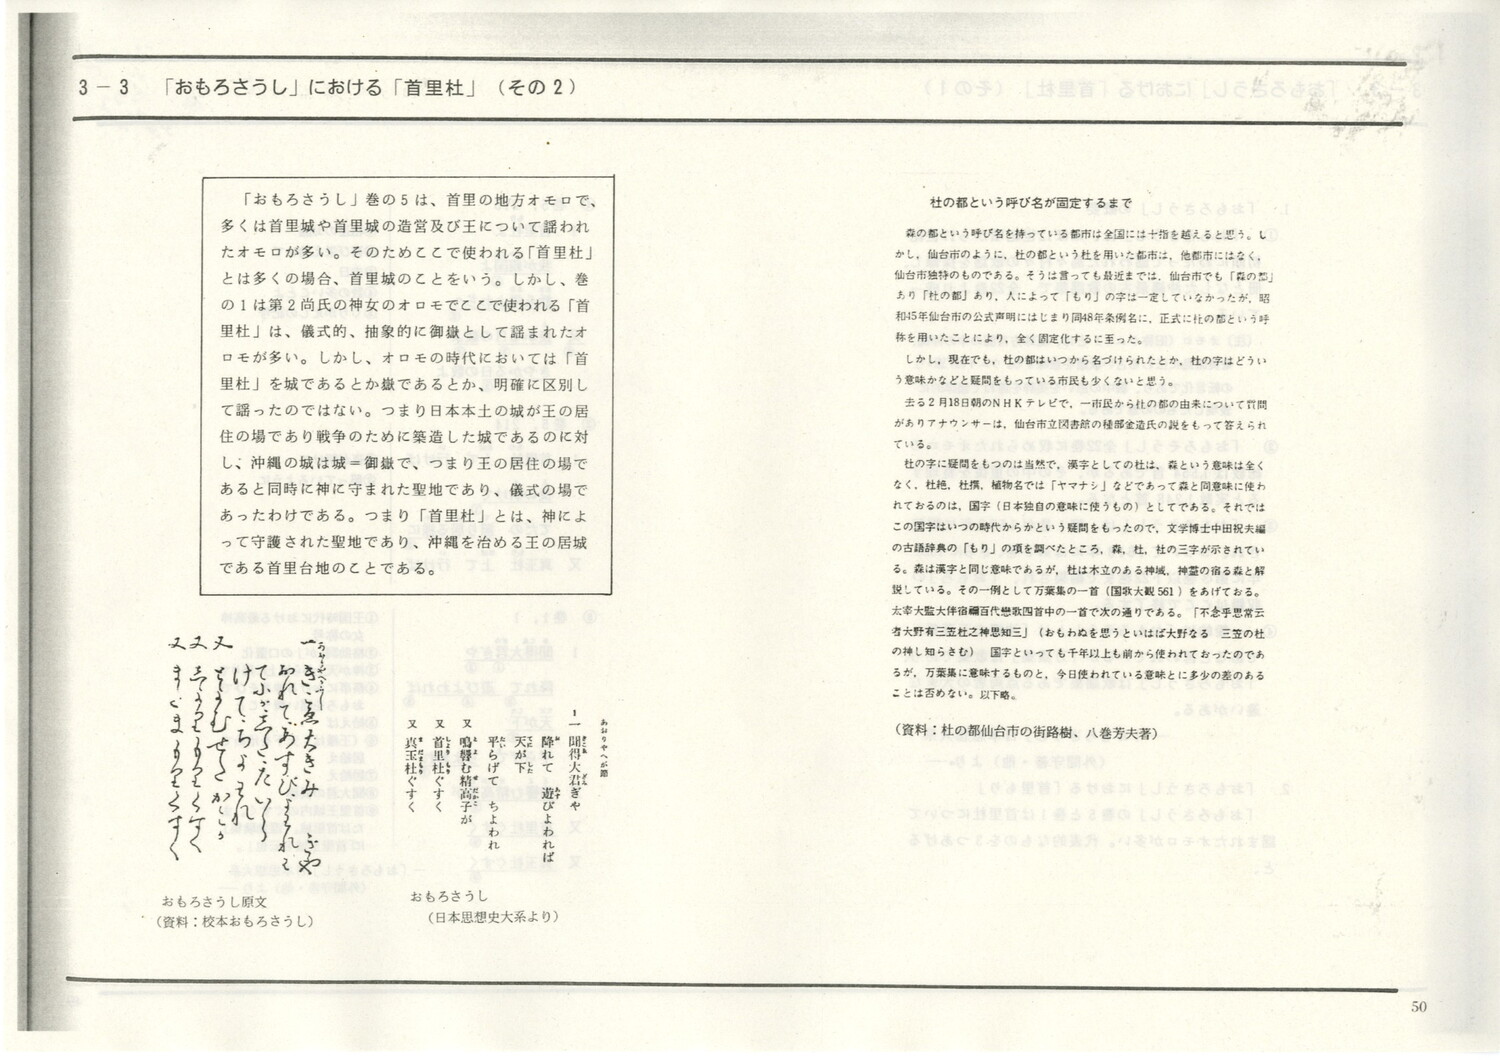 3－3　「おもろさうし」における「首里杜」（その2）
「おもろさうし」巻の5は、首里の地方オモロで、
多くは首里城や首里城の造営及び王について謡われ
たオモロが多い。そのためここで使われる「首里杜」
とは多くの場合、首里城のことをいう。しかし、巻
の1は第2尚氏の神女のオロモでここで使われる「首
里杜」は、儀式的、抽象的に御嶽として謡まれたオ
ロモが多い。しかし、オロモの時代においては「首
里杜」を城であるとか嶽であるとか、明確に区別し
て謡ったのではない。つまり日本本土の城が王の居
住の場であり戦争のために築造した城であるのに対
し、沖縄の城は城＝御嶽で、つまり王の居住の場で
あると同時に神に守まれた聖地であり、儀式の場で
あったわけである。つまり「首里杜」とは、神によ
って守護された聖地であり、沖縄を治める王の居城
である首里台地のことである。
一きこゑ大きみ　ぎや
おれて　あすびよわれは
てにか
けて　ちよわれ
又
又
又
おもろさうし原文
（資料：校本おもろさうし）
あおりやへが節
1一聞得大君ぎや
降れて　遊びよわれば
天が下
平らげて　ちよわれ
又　鳴響む精高子が
又　首里杜ぐすく
又　真玉杜ぐすく
おもろさうし
（日本思想史大系より）
杜の都という呼び名が固定するまで
森の都という呼び名を持っている都市は全国には十指を越えると思う。し
かし、仙台市のように、杜の都という杜を用いた都市は、他都市にはなく、
仙台市独特のものである。そうは言っても最近までは、仙台市でも「森の都」
あり「杜の都」あり、人によって「もり」の字は一定していなかったが、昭
和45年仙台市の公式声明にはじまり同48年条例名に、正式に杜の都という呼
称を用いたことにより、全く固定化するに至った。
しかし、現在でも、杜の都はいつから名づけられたとか、杜の字はどうい
う意味かなどと疑問をもっている市民も少くないと思う。
去る2月18日朝のNHKテレビで、一市民から杜の都の由来について質問
がありアナウンサーは、仙台市立図書館の種部金造氏の説をもって答えられ
ている。
杜の字に疑問をもつのは当然で、漢字としての杜は、森という意味は全く
なく、杜絶、杜撰、植物名では「ヤマナシ」などであって森と同意味に使わ
れておるのは、国字（日本独自の意味に使うもの）としてである。それでは
この国字はいつの時代からかという疑問をもったので、文学博士中田祝夫編
の古語辞典の「もり」の項を調べたところ、森、杜、社の三字が示されてい
る。森は漢字と同じ意味であるが、杜は木立のある神域、神霊の宿る森と解
説している。その一例として万葉集の一首（国歌大観561）をあげておる。
太宰大監大伴宿禰百代戀歌四首中の一首で次の通りである。「不念乎思常云
者大野有三笠杜之神思知三」（おもわぬを思うといはば大野なる　三笠の杜
の神し知らさむ）　国字といっても千年以上も前から使われておったのであ
るが、万葉集に意味するものと、今日使われている意味とに多少の差のある
ことは否めない。以下略。
（資料：杜の都仙台市の街路樹、八巻芳夫著）
50